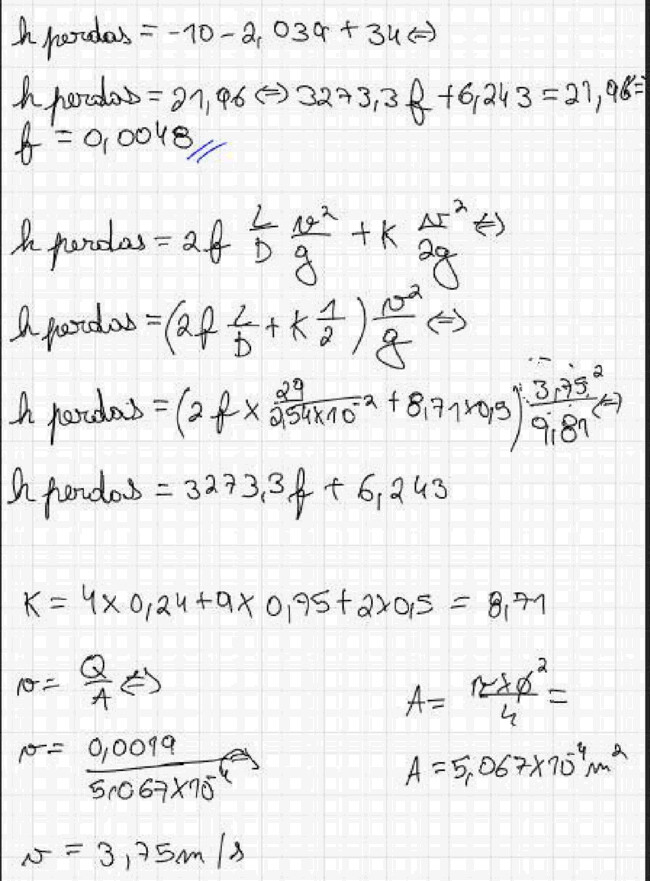 h perdas = -10 - 2,039 + 34 ⇔
h perdas = 21,96 ⇔ 3273,3f + 6,243 = 21,96 ⇔
f = 0,0048
h perdas = 2f L/D v²/g + K v²/2g ⇔
h perdas = (2f L/D + K 1/2) v²/g ⇔
h perdas = (2f × 29/2,54×10⁻² + 8,71×0,5) 3,75²/9,81 ⇔
h perdas = 3273,3f + 6,243
K = 4×0,24+9×0,75+2×0,5 = 8,71
v = Q/A ⇔
A = π×φ²/4 =
v = 0,0019/5,067×10⁻⁴ ⇔
A = 5,067×10⁻⁴m²
v = 3,75m/s